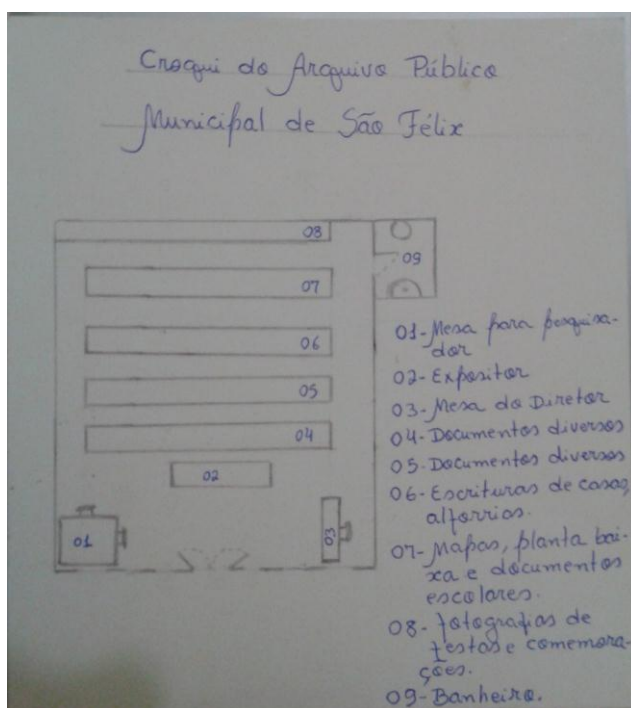 Croqui do Arquivo Público
Municipal de São Félix
08
09
07
06
05
04
02
01
03
01-Mesa para pesquisa-
dor
02-Expositor
03-Mesa do Diretor
04-Documentos diversos
05-Documentos diversos
06-Escrituras de casas,
alforrias.
07-Mapas, planta bai-
xa e documentos
escolares.
08-fotografias de
festas e comemora-
ções.
09-Banheiro.